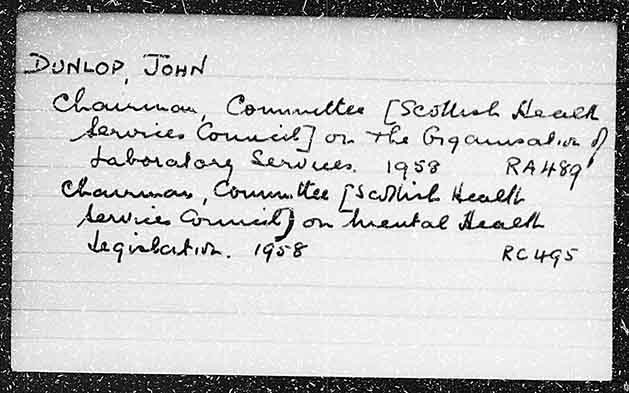 DUNLOP, JOHN
Chairman, Committee [Scottish Health
Services Council] on the Organisation of
Laboratory Services. 1958 RA489
Chairman, Committee [Scottish Health
Services Council] on Mental Health
Legislation. 1958 RC495